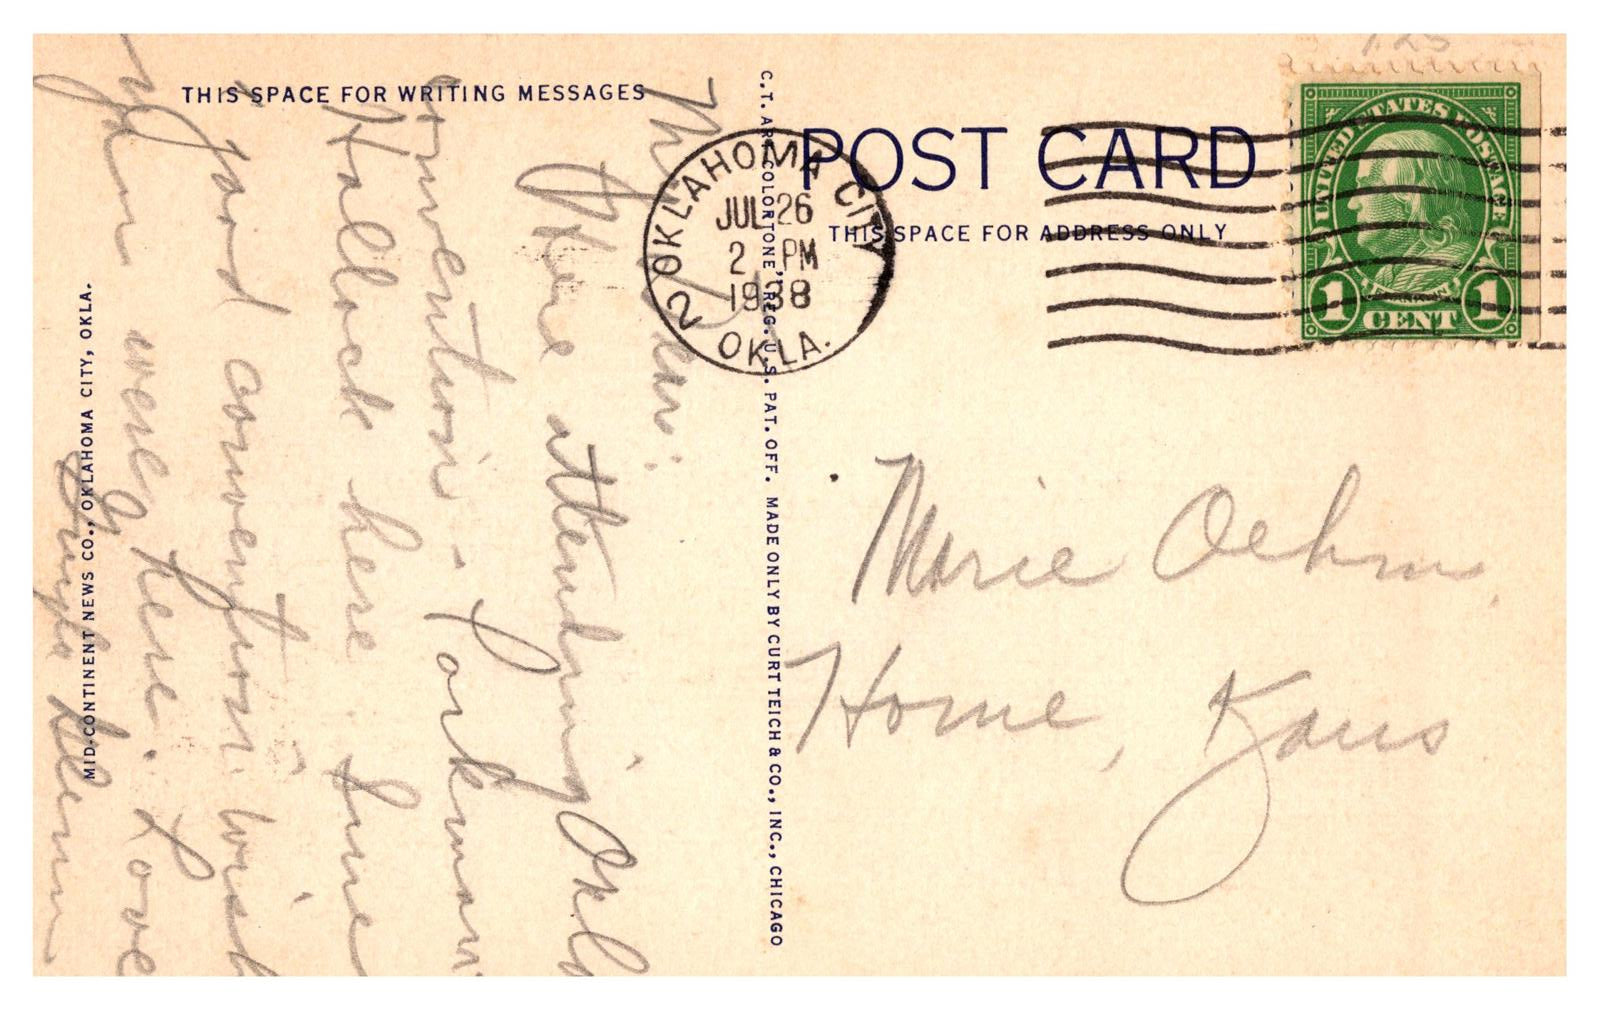 THIS SPACE FOR WRITING MESSAGES
Here attending Okla
invention - Parkman
Hallock here. Fine
good convention. Wish
you were here. Love
MID-CONTINENT NEWS CO., OKLAHOMA CITY, OKLA.
C.T. ART COLORTONE, REG. U.S. PAT. OFF. MADE ONLY BY CURT TEICH & CO., INC., CHICAGO
POST CARD
THIS SPACE FOR ADDRESS ONLY
OKLAHOMA CITY
JUL 26
2 PM
1938
2 OKLA.
UNITED STATES POSTAGE
1 CENT 1
Marie Oehm
Home, Kans